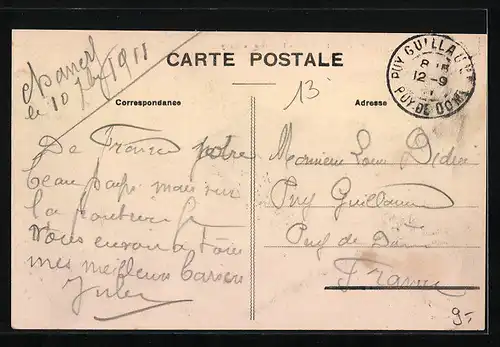 le 10 7bre 1911
CARTE POSTALE
PUY GUILLAUME
8
12-9
11
PUY-DE-DOME
Correspondance
Adresse
13
De France notre
beau pays mais sur
la frontière je
vous envoie a tous
mes meilleurs baisers
Jules
Monsieur Louis Didier
Puy Guillaume
Puy de Dôme
France
9-